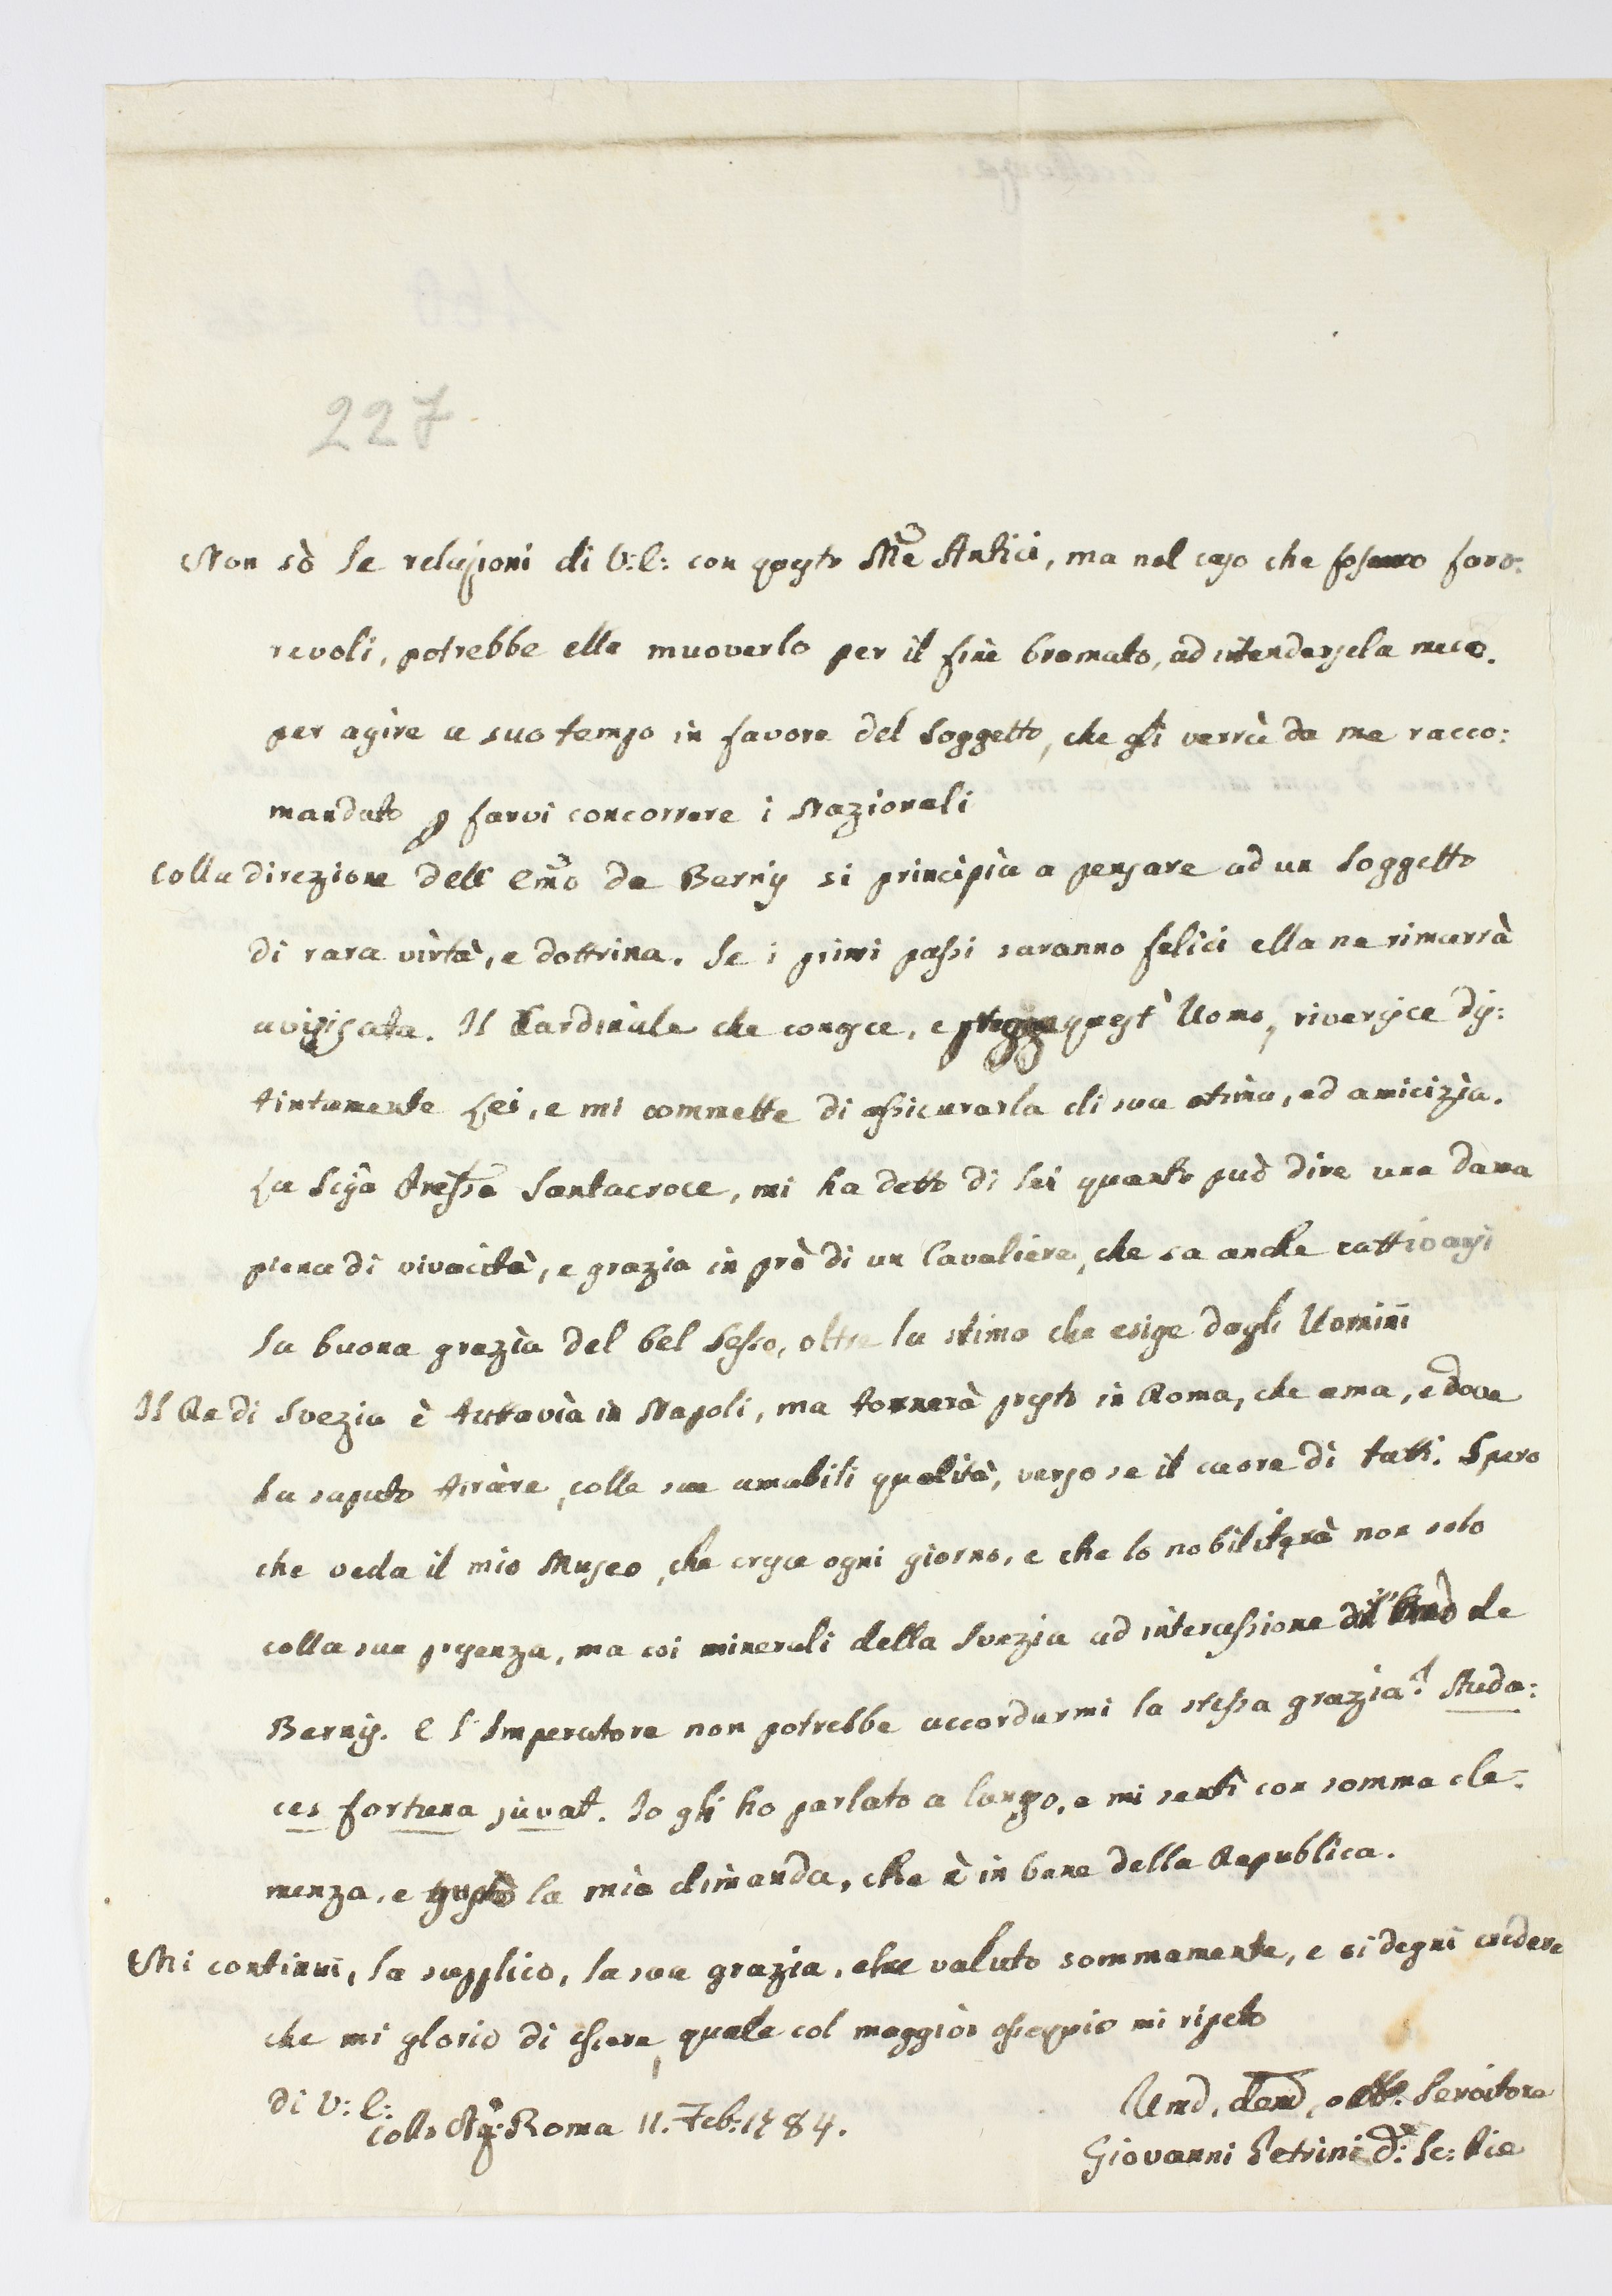 227
Non sò le relazioni di V: E: con questo Mse Antici, ma nel caso che fossero favo:
revoli, potrebbe ella muoverlo per il fine bramato, ad intendersela meco.
per agire a suo tempo in favore del Soggetto, che gli verrà da me racco:
mandato p farvi concorrere i Nazionali
Colla direzione dell' Emo de Bernis si principia a pensare ad un Soggetto
di rara virtù, e dottrina. Se i primi passi saranno felici ella ne rimarrà
avvisata. Il Cardinale che conosce, e quest' Uomo, riverisce dis:
tintamente Lei, e mi commette di assicurarla di sua stima, ed amicizia.
La Siga Pnessa Santacroce, mi ha detto di Lei quanto può dire una dama
piena di vivacità, e grazia in prò di un Cavaliere, che sa anche cattivarsi
la buona grazia del bel Sesso, oltre la stima che esige dagli Uomini
Il Re di Svezia è tuttavia in Napoli, ma tornerà presto in Roma, che ama, e dove
ha saputo tirare, colle sue amabili qualità, verso se il cuore di tutti. Spero
che veda il mio Museo, che cresce ogni giorno, e che lo nobiliterà non solo
colla sua presenza, ma coi minerali della Svezia ad intercessione dell' Emo de
Bernis. E l'Imperatore non potrebbe accordarmi la stessa grazia? Auda:
ces fortuna juvat. Io gli ho parlato a lungo, e mi sentì con somma cle:
menza, e la mia dimanda, che è in bene della Republica.
Mi continui, la supplico, la sua grazia, che valuto sommamente, e si degni credere
che mi glorio di essere, quale col maggior ossequio mi ripeto
di V: E:
Umo, devmo, obbo Servitore
Collo Roma 11. Feb: 1784.
Giovanni Petrini d: Sc: Pie